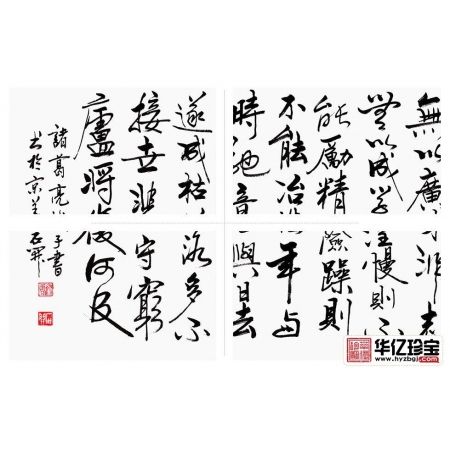 無以廣非志
無以成学淫慢則不
能勵精險躁則
不能冶年与
時馳意與日去
遂成枯落多不
接世悲守窮
廬將復何及
諸葛亮子書
书於京
华亿珍宝
www.hyzbgj.com